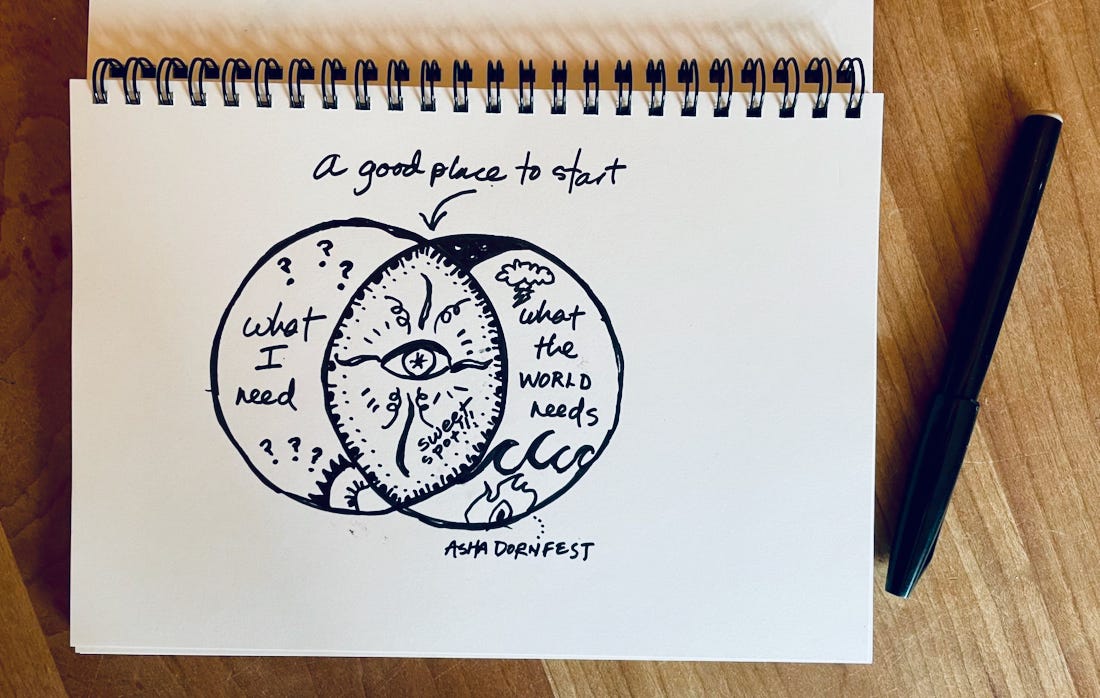 a good place to start
? ? ?
what
I
need
? ? ?
sweet
spot!!!
what
the
WORLD
needs
ASHA DORNFEST